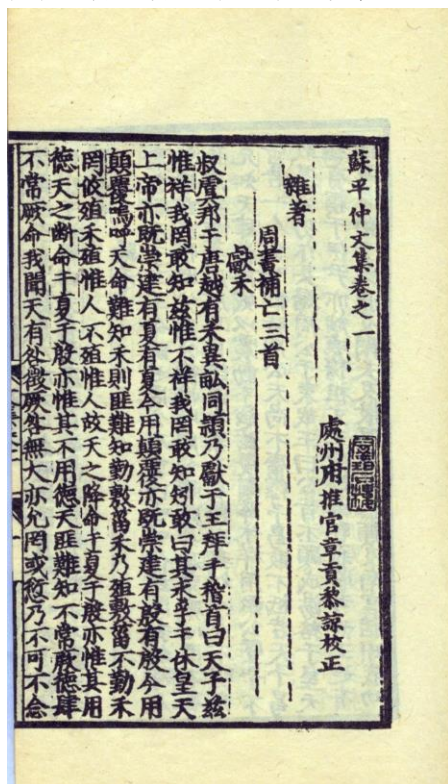 蘇平仲文集卷之一
處州府推官章貢黎諒校正
雜著
周書補亡三首
獻禾
叔虞邦于唐越有禾異畝同穎乃獻于王拜手稽首曰天子茲
惟祥我罔敢知茲惟不祥我罔敢知矧敢曰其永孚于休皇天
上帝亦既崇建有夏有夏今用顛覆亦既崇建有殷有殷今用
顛覆嗚呼天命難知禾則匪難知勤敷菑禾乃殖敷菑不勤禾
罔攸殖禾殖惟人不殖惟人故天之降命于夏于殷亦惟其用
德天之斷命于夏于殷亦惟其不用德天匪難知不常厥德肆
不常厥命我聞天有咎徵厥咎無大亦允罔或愆乃不可不念